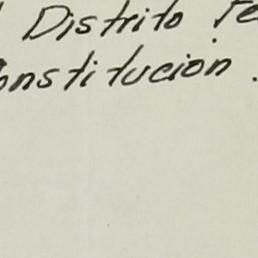 Distrito Fe
onstitución.